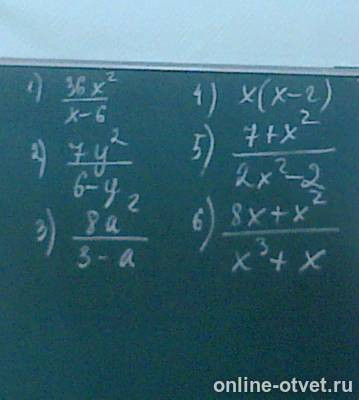 1) 36x² / x-6
2) 7y² / 6-y
3) 8a² / 3-a
4) x(x-2)
5) 7+x² / 2x²-2
6) 8x+x² / x³+x
online-otvet.ru